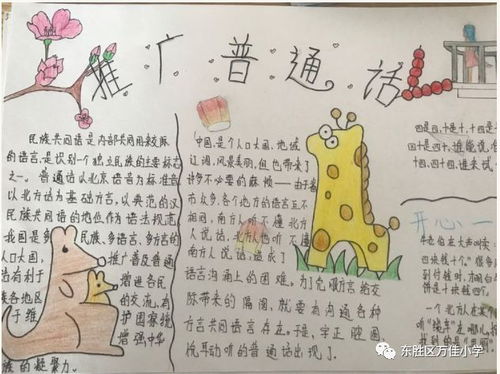 推广普通话
民族共同语是内部共同用来交际
的语言,是识别一个独立民族的主要标志
之一。普通话以北京语音为标准音
以北方话为基础方言,以典范的
民族共同语的地位作为语法规范
我国是多民族、多语言、多方言的
人口大国,推广普及普通
话有利于增进各民
族各地区的交流,有
于维护国家统
增强中华
族的凝聚力。
中国,是个人口大国,地域
辽阔,风景美丽,但也带来了
许多不必要的麻烦——由于
市众多,各个地方的语言互不
相同,南方人听不懂北方
人说话,北方人也听不懂
南方人说话,造成了
语言沟通上的困难。为了克服方言给交
际带来的隔阂,就要有沟通各种
方言共同语言存在。于是,字正腔圆
抗耳动听的普通话出现了。
四是四,十是十,十四是
四是四十,谁能说
十四,四十,谁来试
开心一
东胜区万佳小学